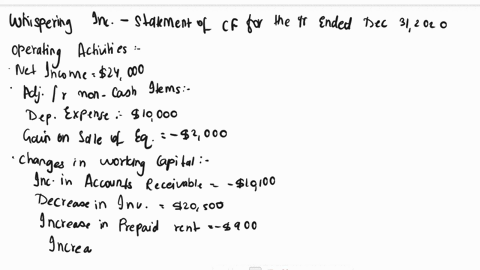 Whispering Inc. - Statement of CF for the Yr Ended Dec 31, 2020
Operating Activities :-
· Net Income = $24,000
· Adj. for non-cash Items:-
Dep. Expense :- $10,000
Gain on Sale of Eq. = -$2,000
· Changes in working Capital :-
Inc. in Accounts Receivable = -$19,100
Decrease in Inv. = $20,500
Increase in Prepaid rent = -$900
Increa